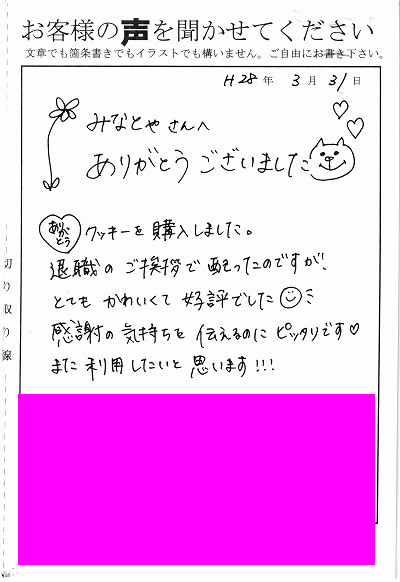 お客様の声を聞かせてください
文章でも箇条書きでもイラストでも構いません。ご自由にお書き下さい。
H28年 3月 31日
みなとやさんへ
ありがとうございました
ありがとう クッキーを購入しました。
退職のご挨拶で配ったのですが、
とてもかわいくて好評でした
感謝の気持ちを伝えるのにピッタリです♥
また利用したいと思います!!!
切り取り線